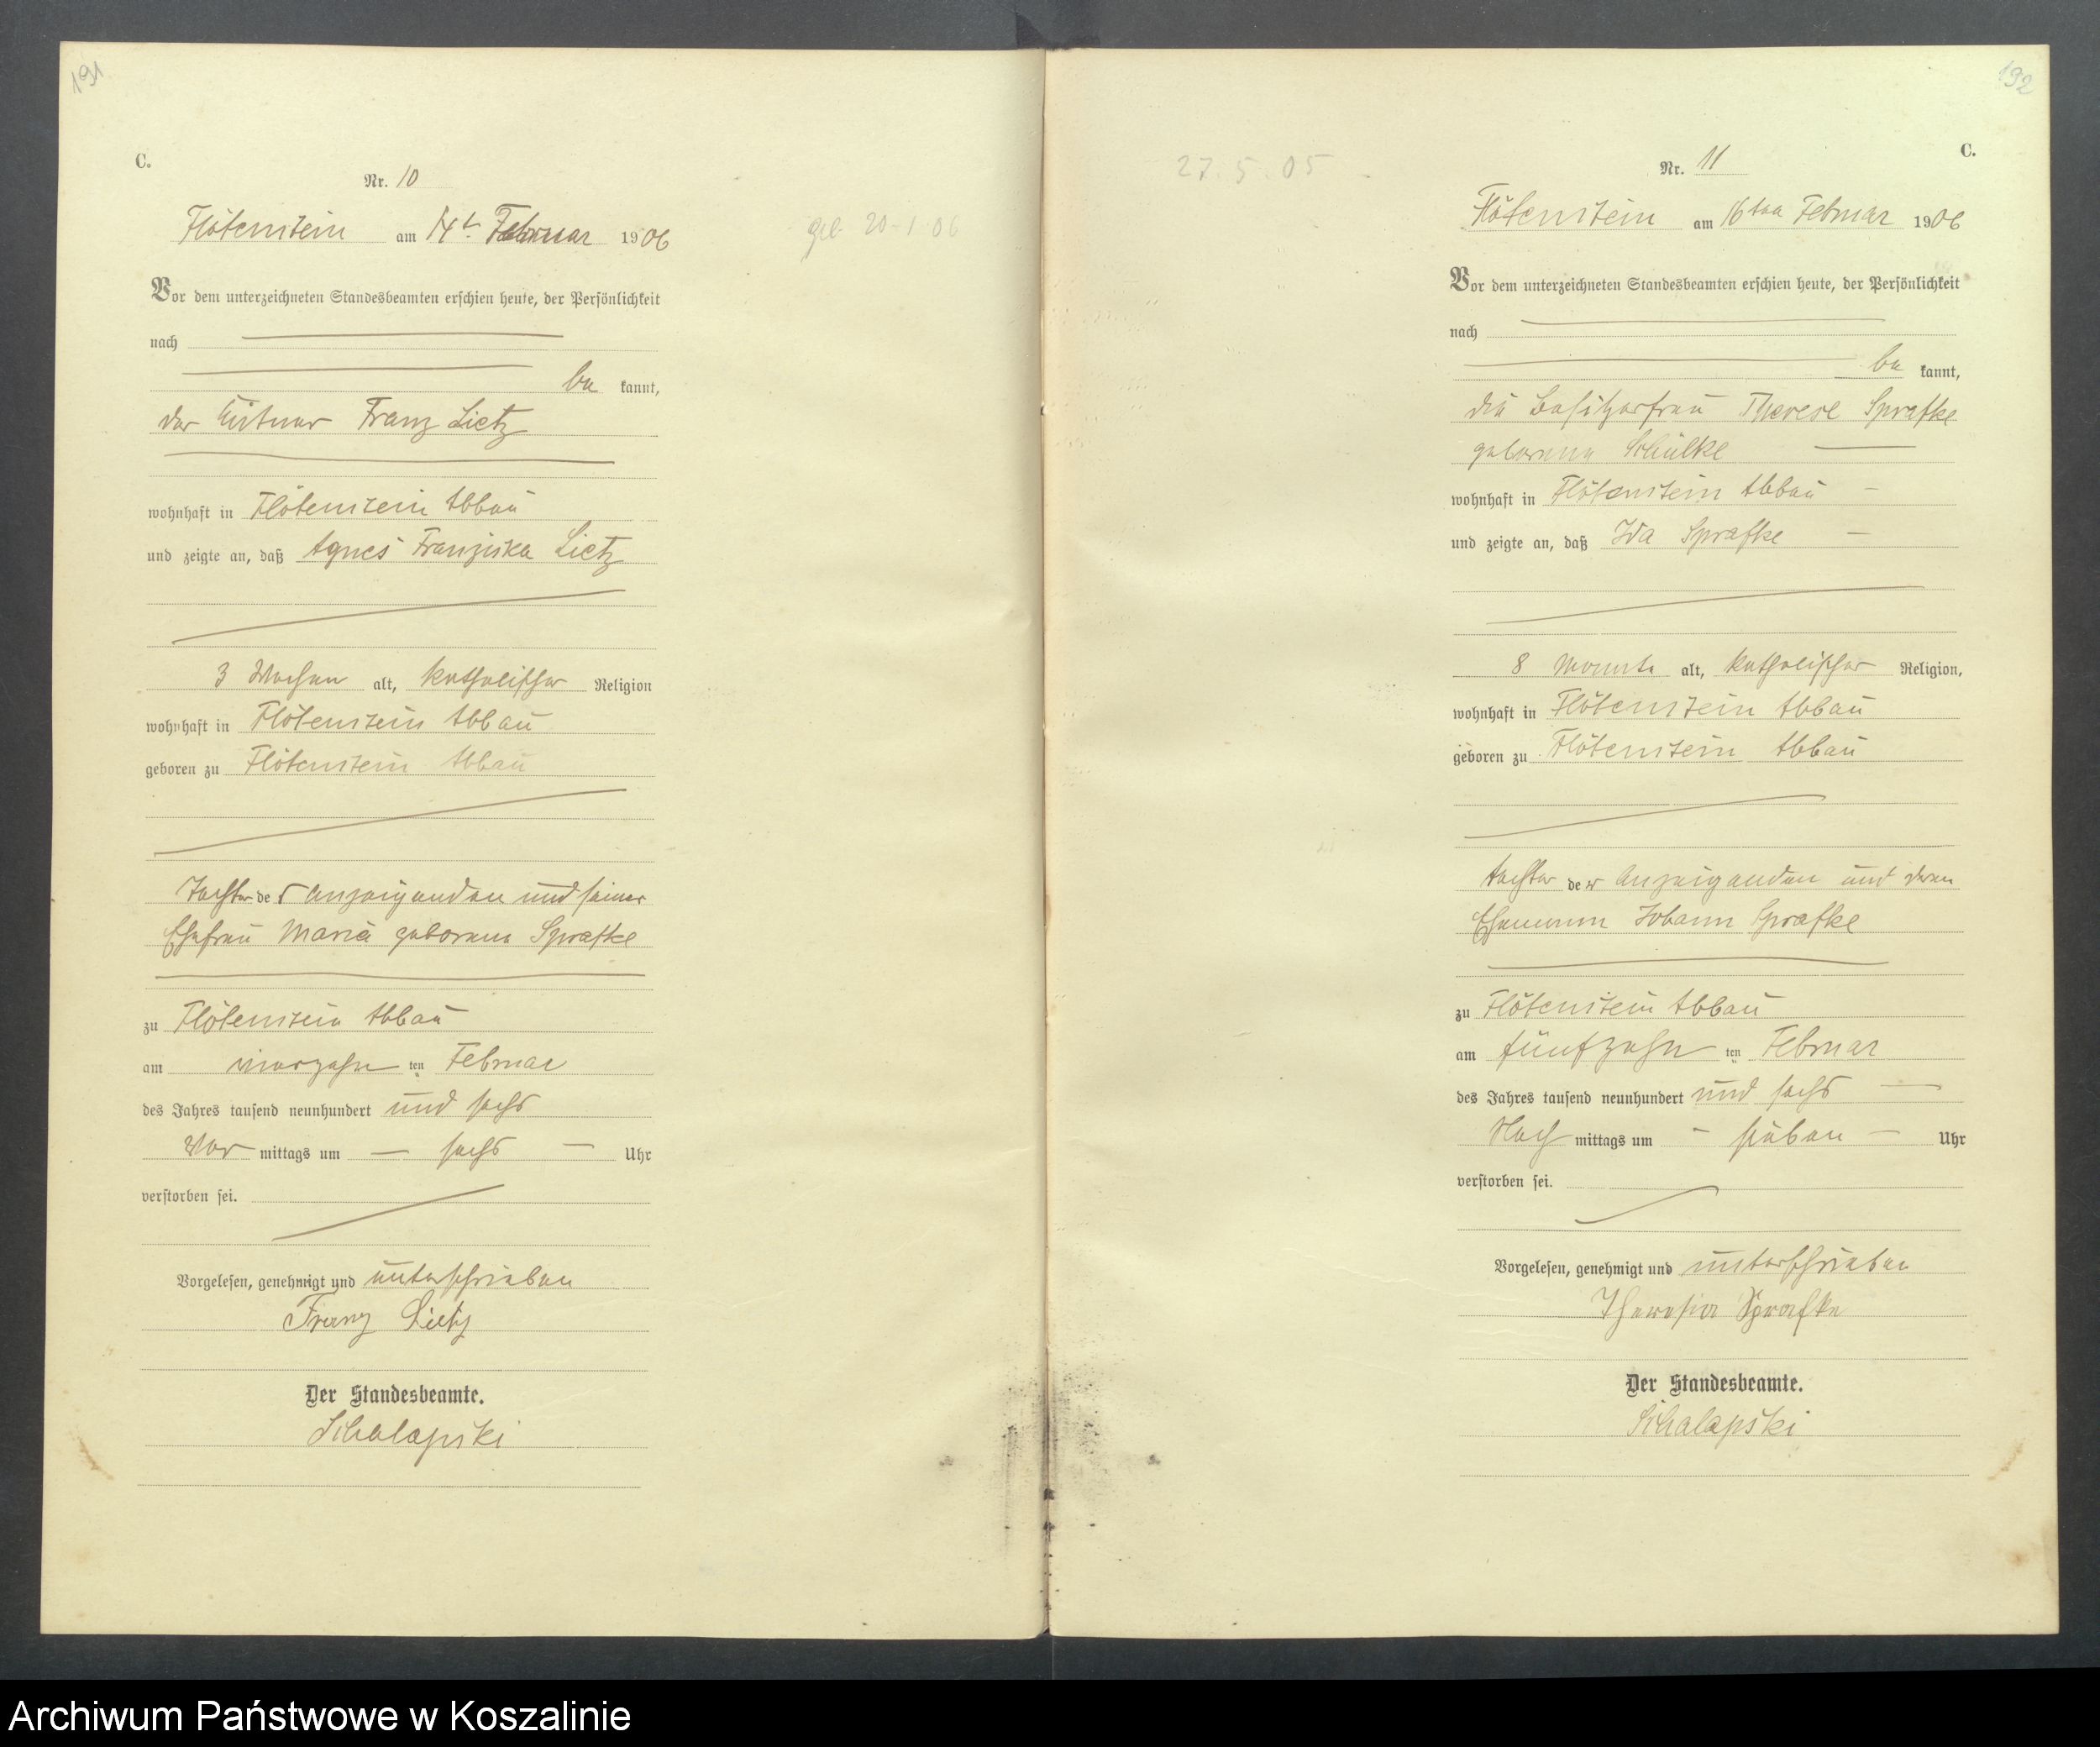 191
C.
Nr. 10
Flötenstein am 14t. Februar 1906
geb 20-1 06
Vor dem unterzeichneten Standesbeamten erschien heute, der Persönlichkeit
nach
be kannt,
der Franz Lietz
wohnhaft in Flötenstein Abbau
und zeigte an, daß Agnes Franziska Lietz
3 Wochen alt, katholischer Religion
wohnhaft in Flötenstein Abbau
geboren zu Flötenstein Abbau
Tochter des Anzeigenden und seiner
Ehefrau Maria geborene Sprafke
zu Flötenstein Abbau
am vierzehn ten Februar
des Jahres tausend neunhundert und sechs
Vor mittags um sechs Uhr
verstorben sei.
Vorgelesen, genehmigt und unterschrieben
Franz Lietz
Der Standesbeamte.
Schalapski
192
C.
27.5.05
Nr. 11
Flötenstein am 16ten Februar 1906
Vor dem unterzeichneten Standesbeamten erschien heute, der Persönlichkeit
nach
be kannt,
die Besitzerfrau Therese Sprafke
geborene Schülke
wohnhaft in Flötenstein Abbau
und zeigte an, daß Ida Sprafke
8 Monate alt, katholischer Religion,
wohnhaft in Flötenstein Abbau
geboren zu Flötenstein Abbau
Tochter der Anzeigenden und deren
Ehemann Johann Sprafke
zu Flötenstein Abbau
am fünfzehn ten Februar
des Jahres tausend neunhundert und sechs
Nach mittags um sieben Uhr
verstorben sei.
Vorgelesen, genehmigt und unterschrieben
Theresia Sprafke
Der Standesbeamte.
Schalapski
Archiwum Państwowe w Koszalinie